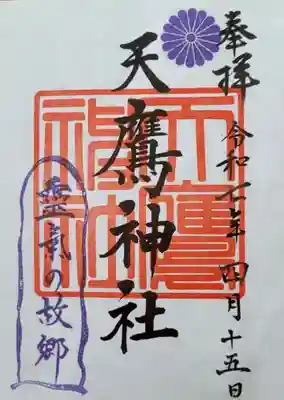 奉拝
令和七年四月十五日
天鷹神社
天鷹神社
靈氣の故郷